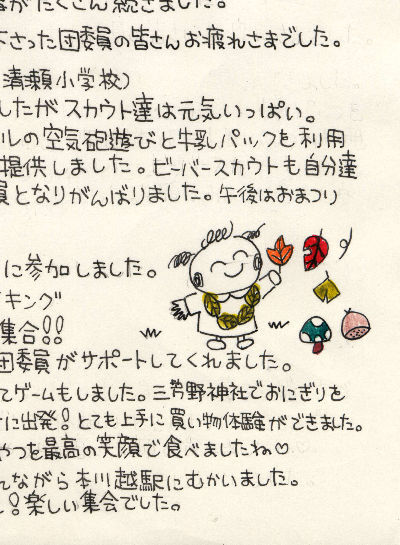 がたくさん続きました。
下さった団委員の皆さんお疲れさまでした。
清瀬小学校)
したがスカウト達は元気いっぱい。
ルの空気砲遊びと牛乳パックを利用
提供しました。ビーバースカウトも自分達
員となりがんばりました。午後はおまつり
に参加しました。
キング
集合!!
団委員がサポートしてくれました。
てゲームもしました。三芳野神社でおにぎりを
に出発!とても上手に買い物体験ができました。
やつを最高の笑顔で食べましたね♡
ながら本川越駅にむかいました。
!楽しい集会でした。